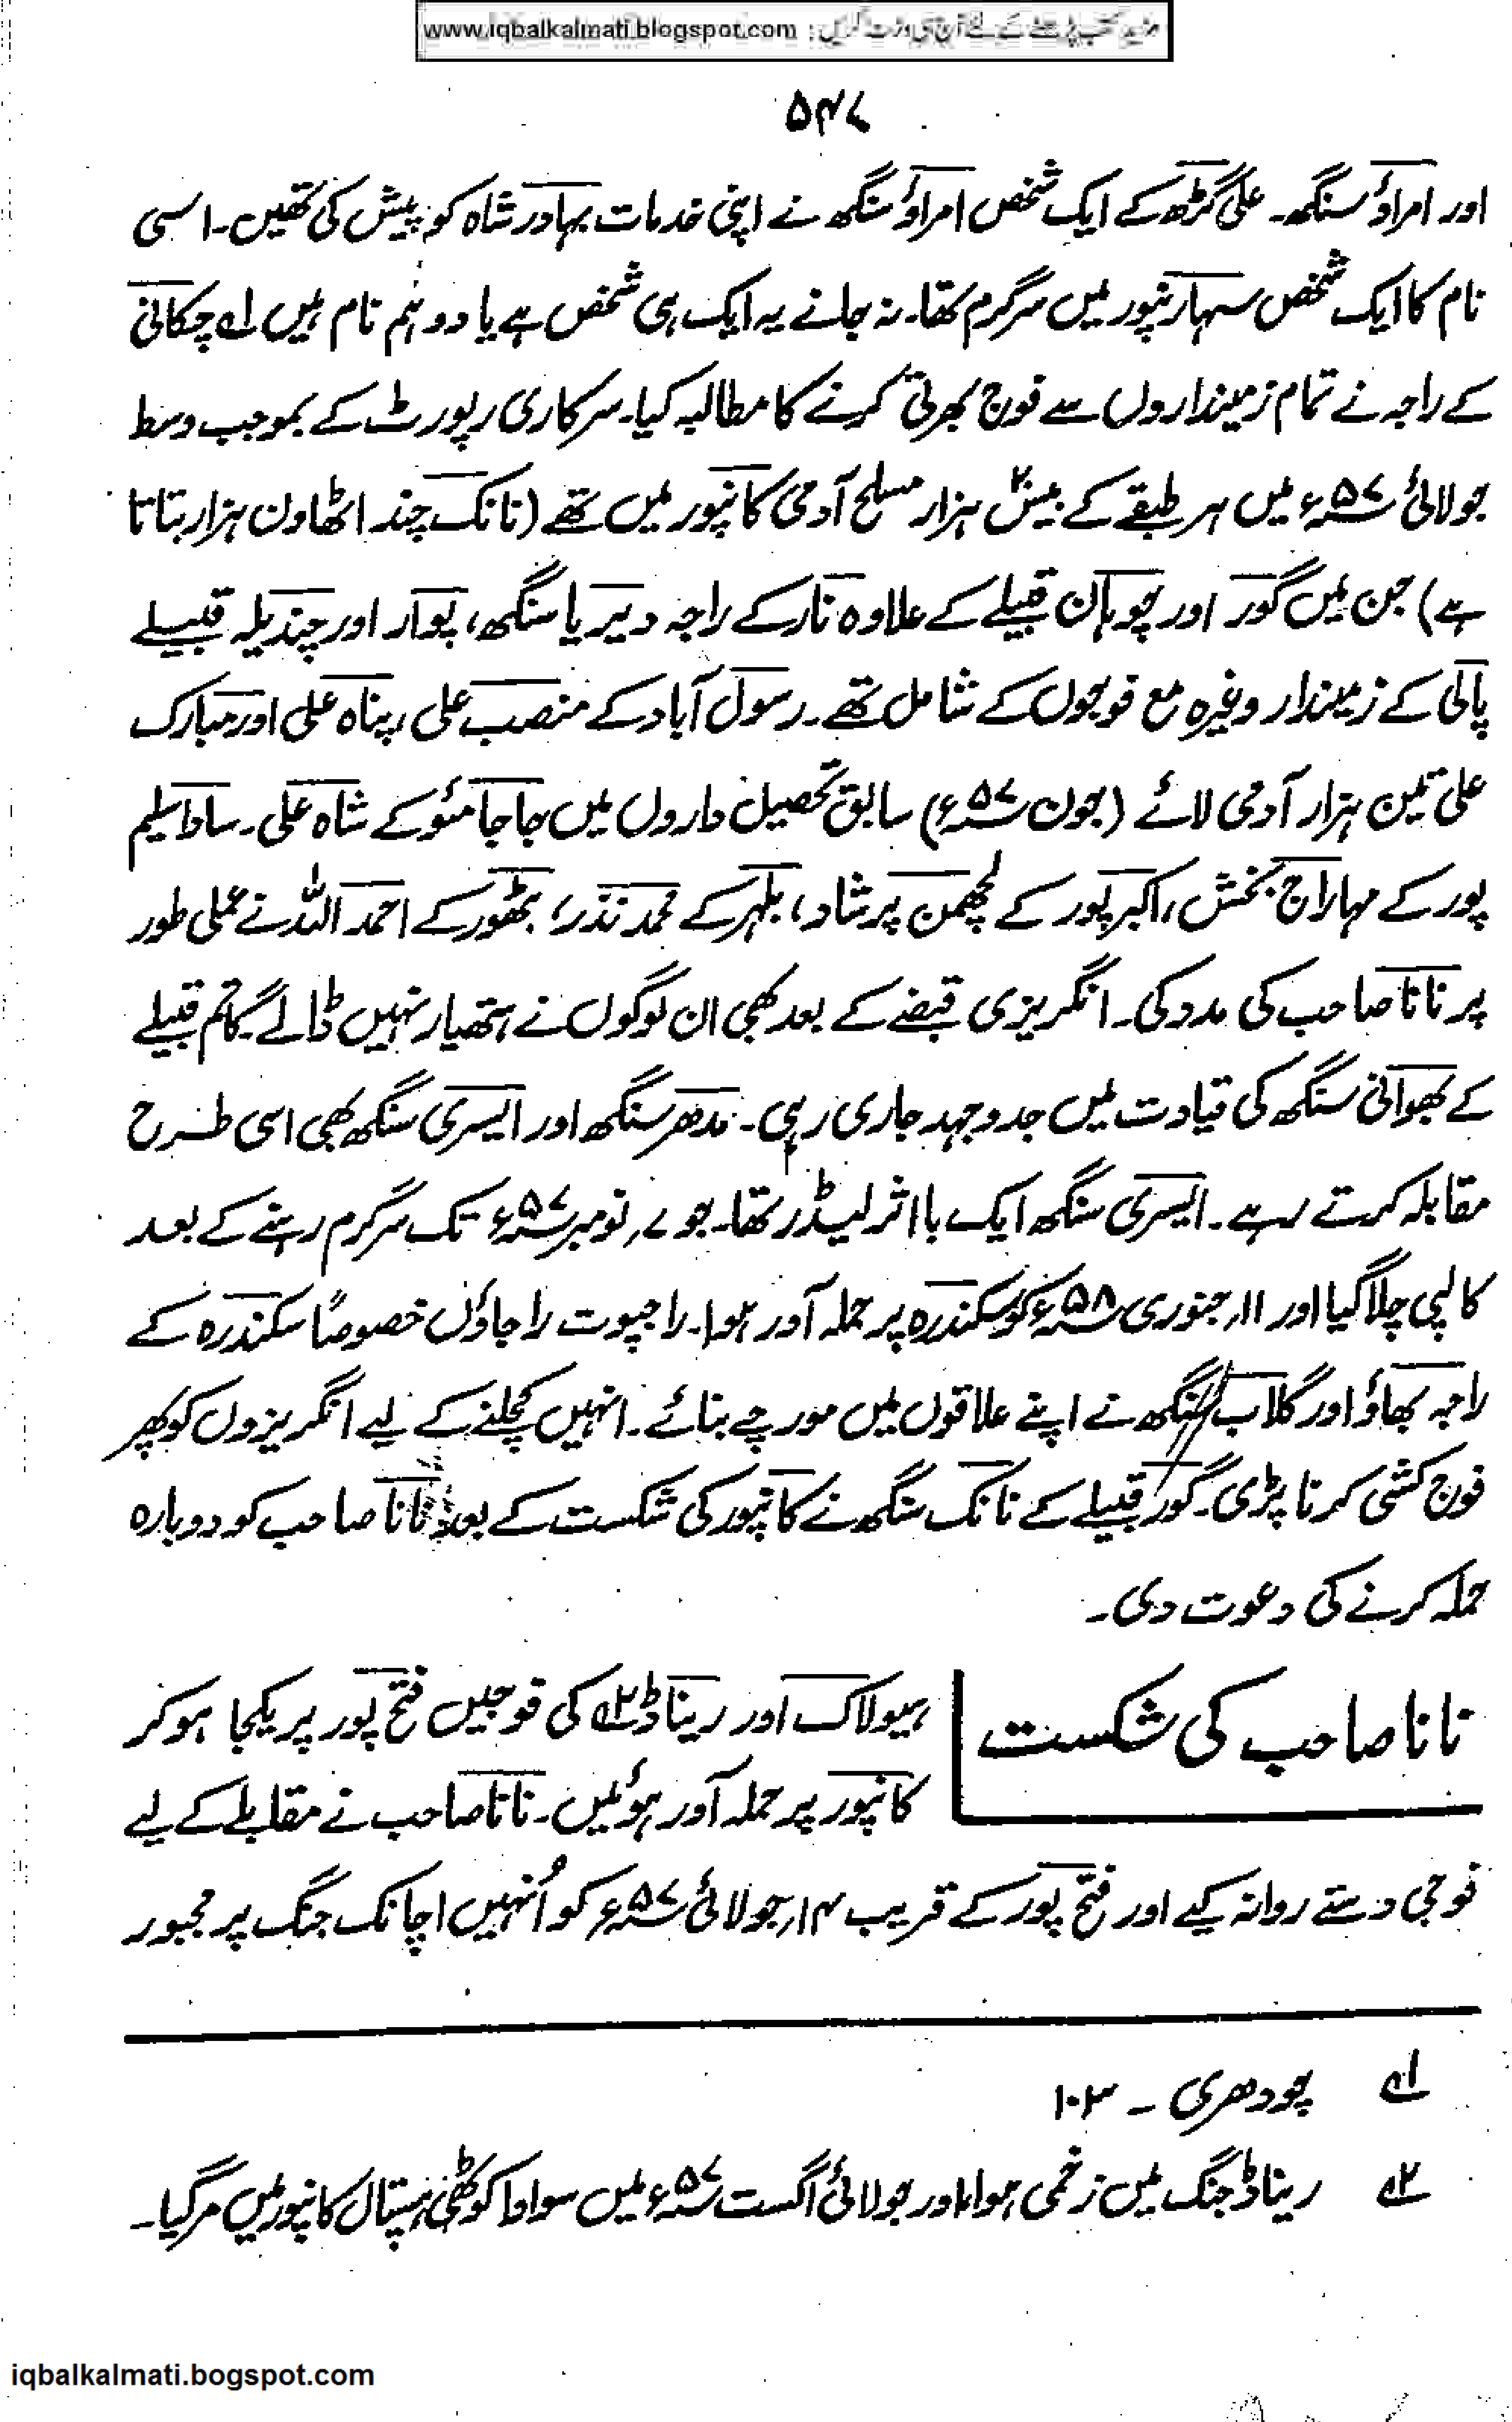 مزید کتب پڑھنے کے لئے آج ہی وزٹ کریں : www.iqbalkalmati.blogspot.com
۵۴۷
اور امراؤ سنگھ۔ علی گڑھ کے ایک شخص امراؤ سنگھ نے اپنی خدمات بہادر شاہ کو پیش کی تھیں۔ اسی
نام کا ایک شخص سہارنپور میں سرگرم تھا۔ نہ جانے یہ ایک ہی شخص ہے یا دو ہم نام ہیں ؎۱ چکائی
کے راجہ نے تمام زمینداروں سے فوج بھرتی کرنے کا مطالبہ کیا۔ سرکاری رپورٹ کے بموجب وسط
جولائی ۵۷ء میں ہر طبقے کے بیس۲۰ ہزار مسلح آدمی کانپور میں تھے (نانک چند اٹھاون ہزار بتاتا
ہے) جن میں گور اور چوہان قبیلے کے علاوہ نار کے راجہ دیر یا سنگھ، پوار اور چندیلہ قبیلے
پالی کے زمیندار وغیرہ مع فوجوں کے شامل تھے۔ رسول آباد کے منصب علی، پناہ علی اور مبارک
علی تین ہزار آدمی لائے (جون ۵۷ء) سابق تحصیل داروں میں جاجا مئو کے شاہ علی۔ ساط سلیم
پور کے مہاراج بخش، اکبر پور کے لچھمن پرشاد، بلہر کے محمد نذر، بٹھور کے احمد اللہ نے عملی طور
پر نانا صاحب کی مدد کی۔ انگریزی قبضے کے بعد بھی ان لوگوں نے ہتھیار نہیں ڈالے۔ گاتم قبیلے
کے بھوانی سنگھ کی قیادت میں جدوجہد جاری رہی۔ مدھر سنگھ اور ایسری سنگھ بھی اسی طرح
مقابلہ کرتے رہے۔ ایسری سنگھ ایک بااثر لیڈر تھا۔ جو ۷ نومبر ۵۷ء تک سرگرم رہنے کے بعد
کالپی چلا گیا اور ۱۱ جنوری ۵۸ء کو سکندرہ پر حملہ آور ہوا۔ راجپوت راجاؤں خصوصاً سکندرہ کے
راجہ بھاؤ اور گلاب سنگھ نے اپنے علاقوں میں مورچے بنائے۔ انہیں کچلنے کے لیے انگریزوں کو پھر
فوج کشی کرنا پڑی۔ گور قبیلے کے نانک سنگھ نے کانپور کی شکست کے بعد نانا صاحب کو دوبارہ
حملہ کرنے کی دعوت دی۔
نانا صاحب کی شکست
ہیولاک اور ریناڈ ؎۲ کی فوجیں فتح پور پر یکجا ہو کر
کانپور پر حملہ آور ہوئیں۔ نانا صاحب نے مقابلے کے لیے
فوجی دستے روانہ کیے اور فتح پور کے قریب ۱۴ جولائی ۵۷ء کو اُنہیں اچانک جنگ پر مجبور
؎۱ چودھری ۔ ۱۰۳
؎۲ ریناڈ جنگ میں زخمی ہوا اور جولائی اگست ۵۷ء میں سواوا کوٹھی ہسپتال کانپور میں مر گیا۔
iqbalkalmati.bogspot.com